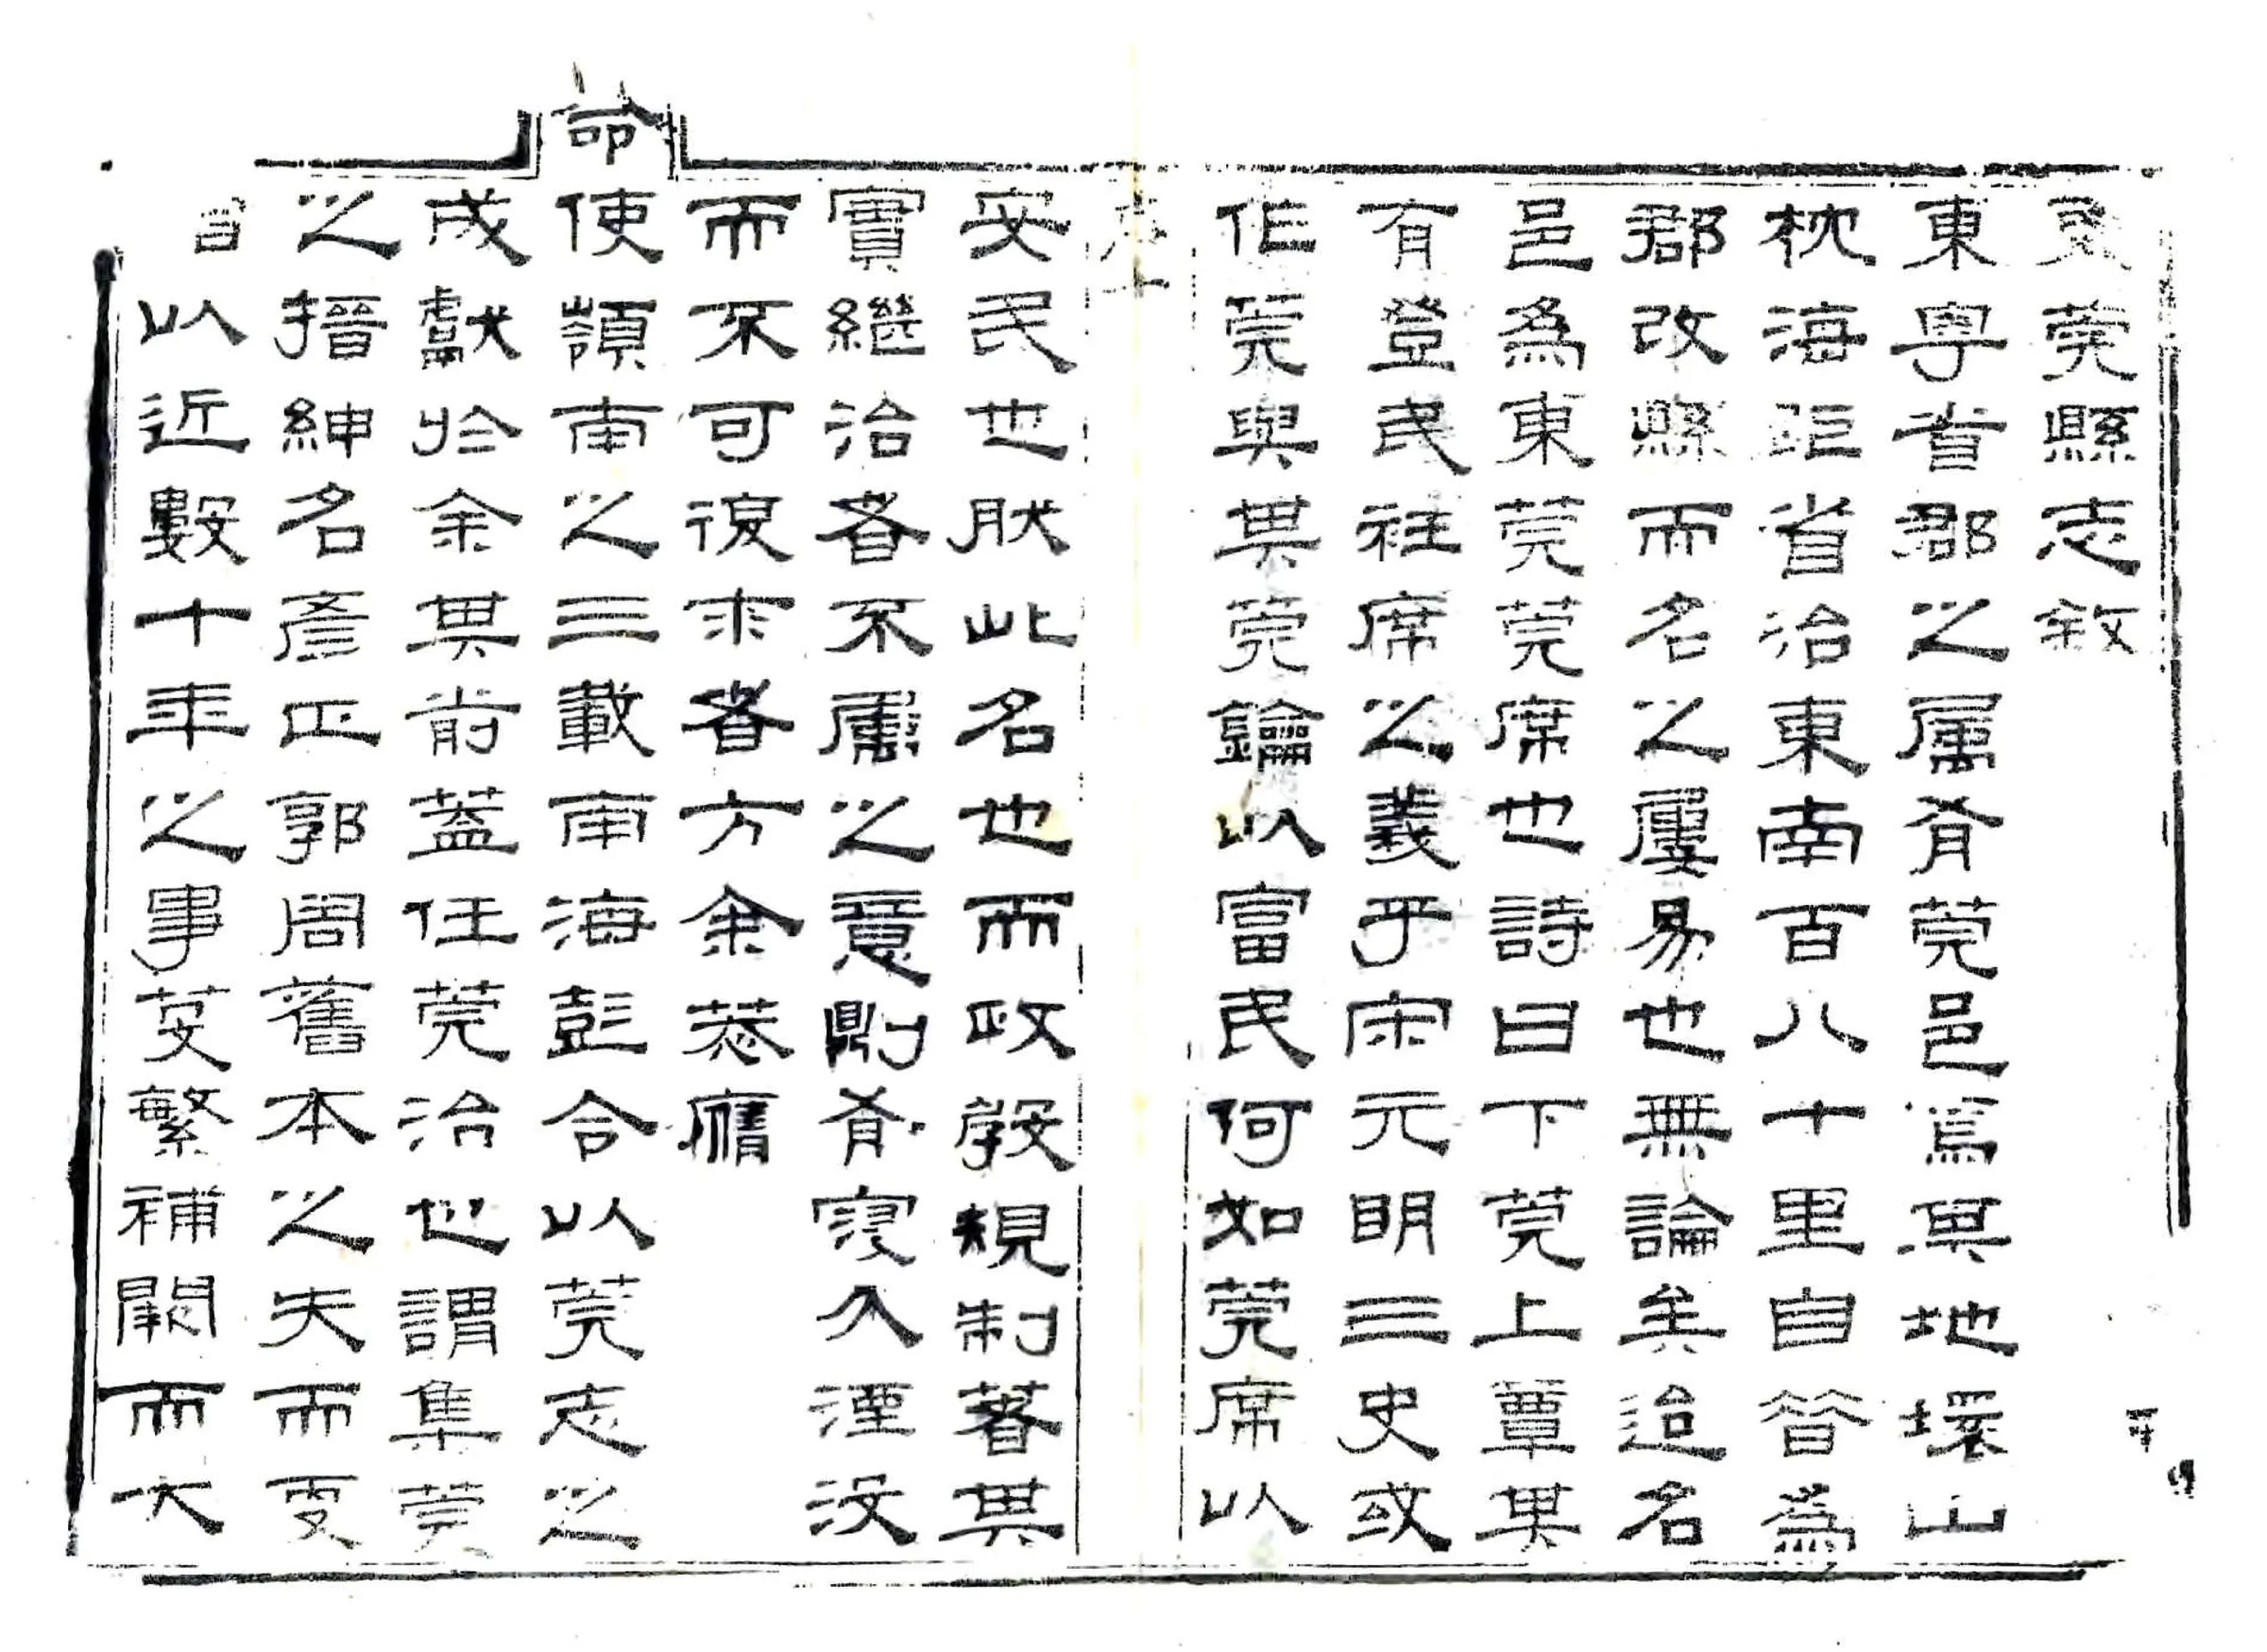 莞縣志敘
東粵省郡之屬有莞邑焉其地環山
枕海距省治東南百八十里自晉為
郡改縣而名之屢易也無論矣迨名
邑為東莞莞席也詩曰下莞上蕈果
有登民衽席之義乎宋元明三史或
作莞與其莞鑰以富民何如莞席以
序
安民也肰此名也而政教規制著其
實繼治者不屬之意則有寖久湮沒
而不可復求者方余恭膺
命使嶺南之三載南海彭合以莞志之
成獻於余其前蓋任莞治也謂集莞
之搢紳名彥正郭周舊本之失而更
以近數十年之事芟繁補闕而大